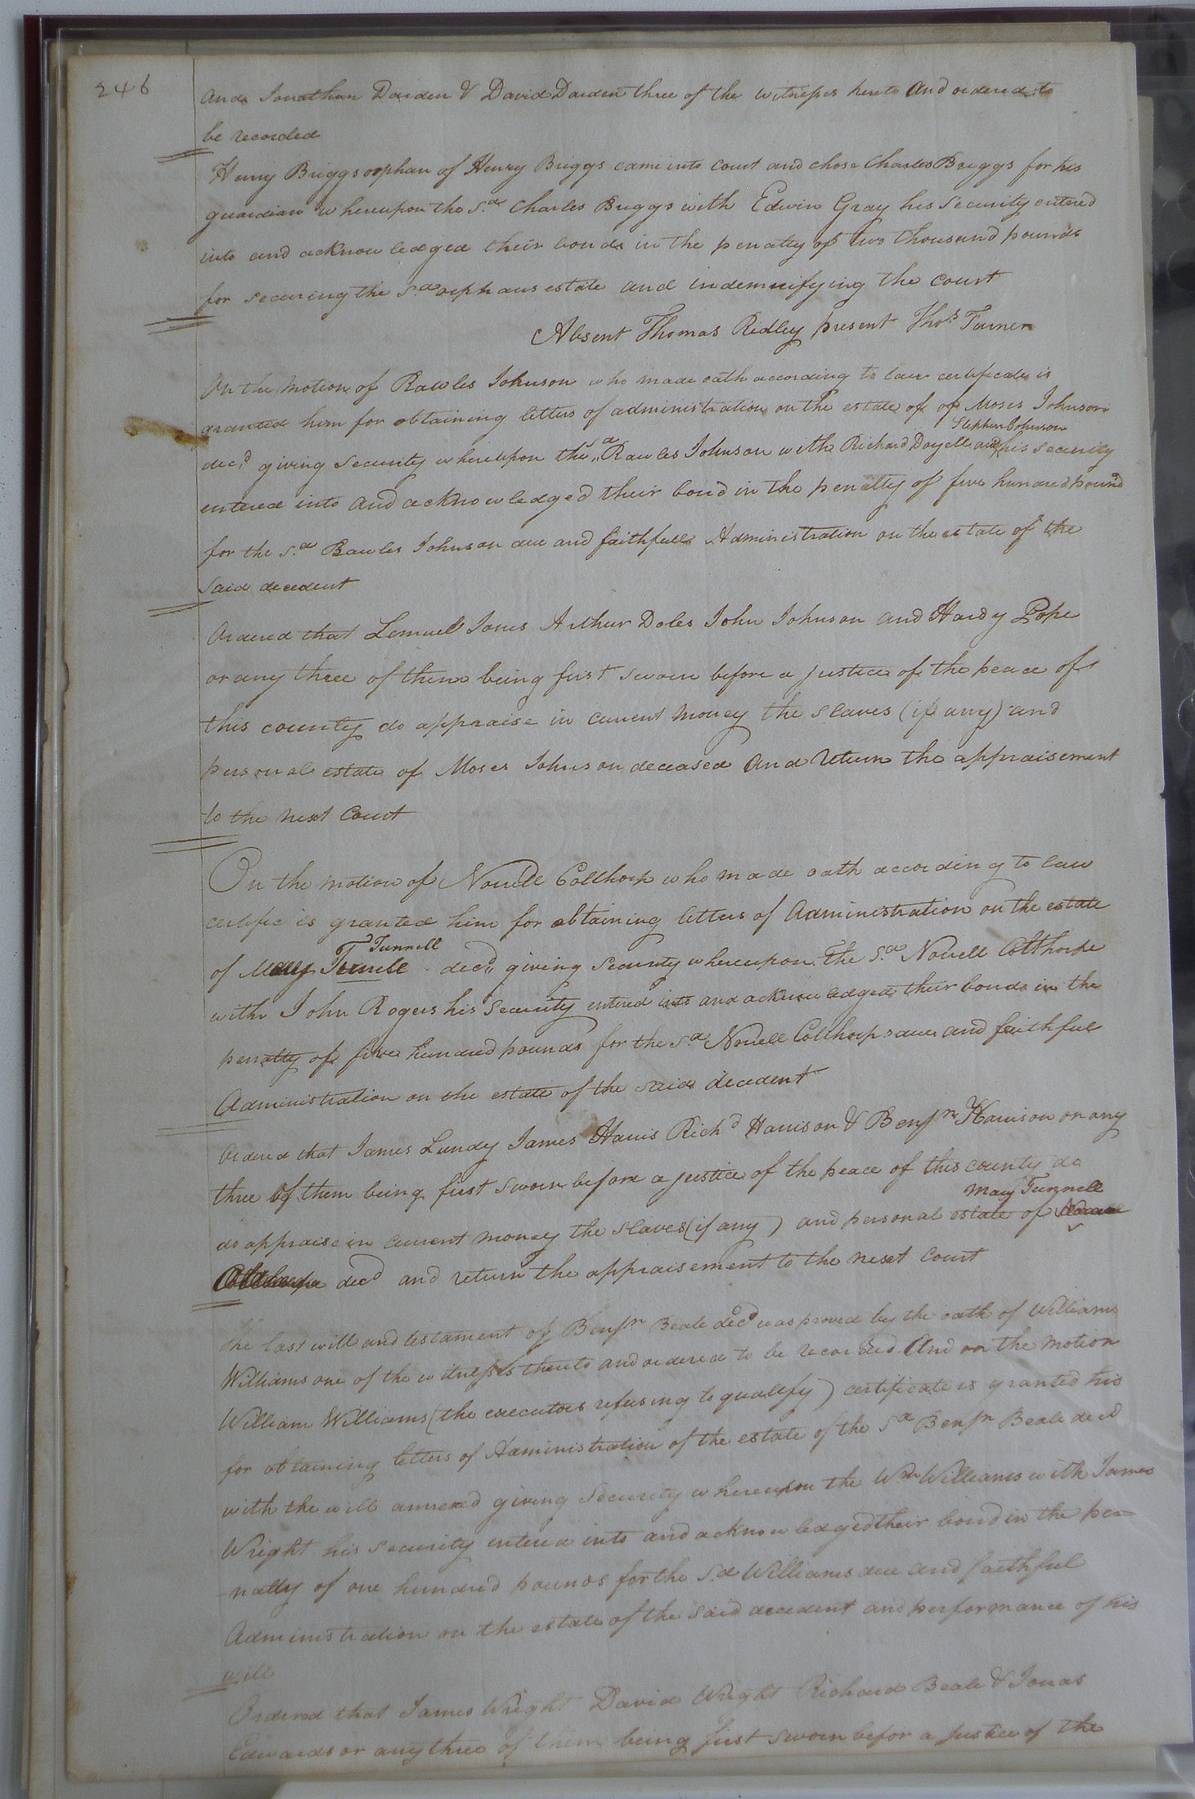 246
and Jonathan Darden & David Darden three of the witnesses hereto And ordered to
be recorded
Henry Briggs orphan of Henry Briggs came into Court and chose Charles Briggs for his
guardian whereupon the Sd. Charles Briggs with Edwin Gray his Security entered
into and acknowledged their bonds in the penalty of two thousand pounds
for securing the Sd orphans estate and indemnifying the Court
Absent Thomas Ridley present Thos. Turner
On the Motion of Rawles Johnson who made oath according to law certificate is
granted him for obtaining letters of administration on the estate of of Moses Johnson
Stephen Johnson
decd. giving Security whereupon the Sd Rawles Johnson with Richard Doyell and his Security
entered into and acknowledged their bond in the penalty of five hundred pound
for the Sd Rawles Johnson due and faithfull Administration on the estate of the
Said decedent
Ordered that Lemuel Jones Arthur Doles John Johnson and Hardy Pope
or any three of them being first Sworn before a justice of the peace of
this county do appraise in current Money the Slaves (if any) and
personal estate of Moses Johnson deceased and return the appraisement
to the next Court
On the motion of Nowell Colthorp who made oath according to law
certific is granted him for obtaining letters of Administration on the estate
Tunnell
of Mary decd. giving Security whereupon the Sd. Nowell Colthorpe
with John Rogers his Security entered into and acknowledged their bonds in the
penalty of five hundred pounds for the Sd Nowell Colthorps due and faithful
Administration on the estate of the Said decedent
Ordered that James Lundy James Harris Richd Harrison & Benjn Harrison or any
three of them being first Sworn before a justice of the peace of this county do
Mary Tunnell
do appraise in current money the Slaves (if any) and personal estate of
decd and return the appraisement to the next Court
The last will and testament of Benjn Beale decd was proved by the oath of Williams
Williams one of the witnesses thereto and ordered to be recorded And on the Motion
William Williams (the executors refusing to qualify) certificate is granted his
for obtaining letters of Administration of the estate of the Sd Benjn Beale decd
with the will annexed giving Security whereupon the Wm Williams with James
Wright his Security entered into and acknowledged their bond in the pe-
nalty of one hundred pounds for the Sd Williams due and faithful
Administration on the estate of the Said decedent and performance of his
will
Ordered that James Wright David Wright Richard Beale & Jonas
Edwards or any three of them being first Sworn befor a Justice of the